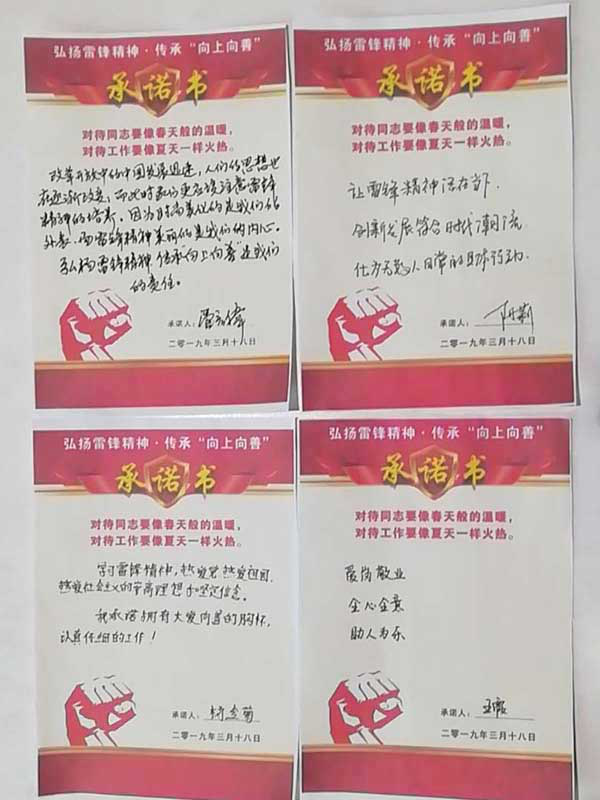 弘扬雷锋精神·传承“向上向善”
承诺书
对待同志要像春天般的温暖，
对待工作要像夏天一样火热。
改革开放中的中国发展迅速，人们的思想也
在逐渐改变，而此时我们更应该注意雷锋
精神的培养。因为时尚美化的是我们的
外表，而雷锋精神美丽的是我们的内心。
弘扬雷锋精神 传承“向上向善”是我们
的责任。
承诺人：
二零一九年三月十八日
弘扬雷锋精神·传承“向上向善”
承诺书
对待同志要像春天般的温暖，
对待工作要像夏天一样火热。
让雷锋精神活在当下
创新发展符合时代潮流
日常的 行动
承诺人：
二零一九年三月十八日
弘扬雷锋精神·传承“向上向善”
承诺书
对待同志要像春天般的温暖，
对待工作要像夏天一样火热。
学习雷锋精神，热爱党 热爱祖国
热爱社会主义的崇高理想和坚定信念。
我承诺拥有大爱向善的胸怀，
认真仔细的工作！
承诺人：
二零一九年三月十八日
弘扬雷锋精神·传承“向上向善”
承诺书
对待同志要像春天般的温暖，
对待工作要像夏天一样火热。
爱岗敬业
全心全意
助人为乐
承诺人：
二零一九年三月十八日